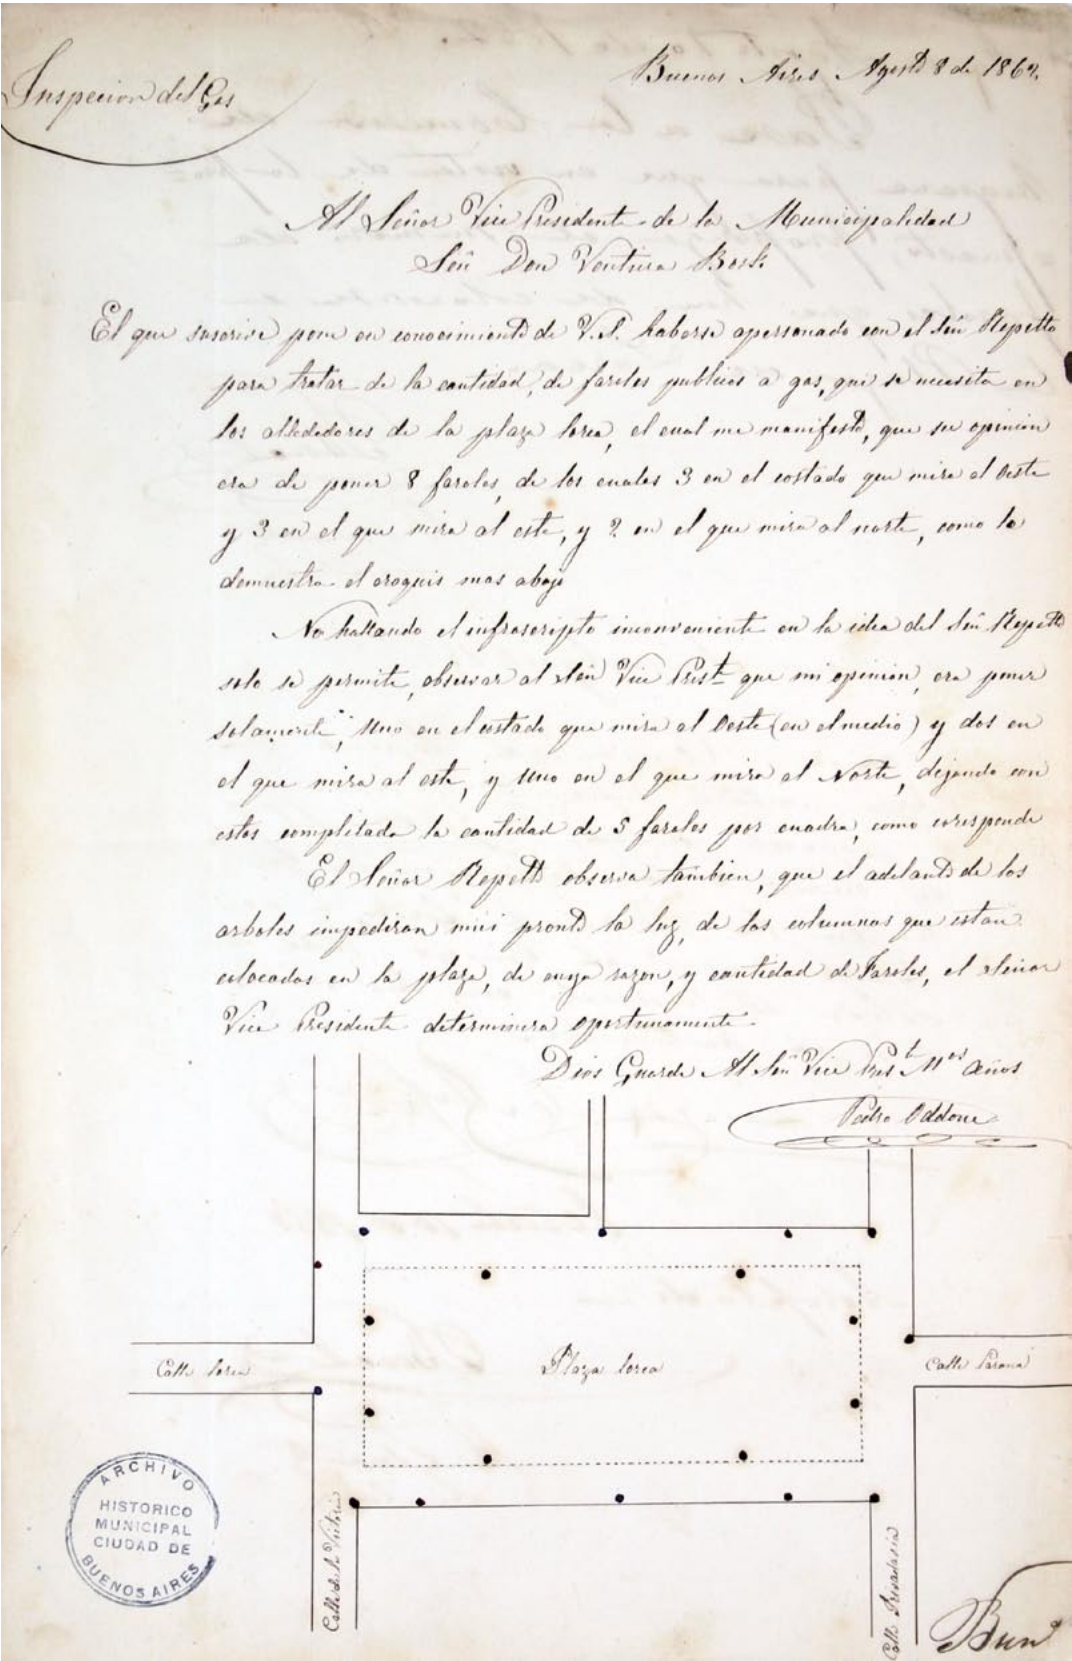 Inspecion del Gas
Buenos Aires Agosto 8 de 1862.
Al Señor Vice Presidente de la Municipalidad
Señ Don Ventura Bosh.
El que suscrive pone en conocimiento de V.S. haberse apersonado con el Señ Repetto
para tratar de la cantidad, de faroles publicos a gas, que se necesita en
los alledadores de la plaza lorea, el cual me manifestó, que su opinion
era de poner 8 faroles, de los cuales 3 en el costado que mira al Oeste
y 3 en el que mira al este, y 2 en el que mira al norte, como lo
demuestra el croquis mas abajo
No hallando el infrascripto inconveniente en la idea del Señ Repetto
solo se permite, observar al Señ Vice Prest. que mi opinion, era poner
solamente, uno en el costado que mira al Oeste (en el medio) y dos en
el que mira al este, y uno en el que mira al Norte, dejando con
estos completada la cantidad de 5 faroles por cuadra, como coresponde
El Señor Repetto observa tambien, que el adelanto de los
arboles impediran mui pronto la luz, de las columnas que estan
colocadas en la plaza, de cuya razon, y cantidad de Faroles, el Señor
Vice Presidente determinera oportunamente.
Dios Guarde Al Señ Vice Prest Mos años
Pedro Oddone
Calle lorea
Plaza lorea
Calle Parana
Calle de la Victoria
Calle Rivadavia
ARCHIVO
HISTORICO
MUNICIPAL
CIUDAD DE
BUENOS AIRES